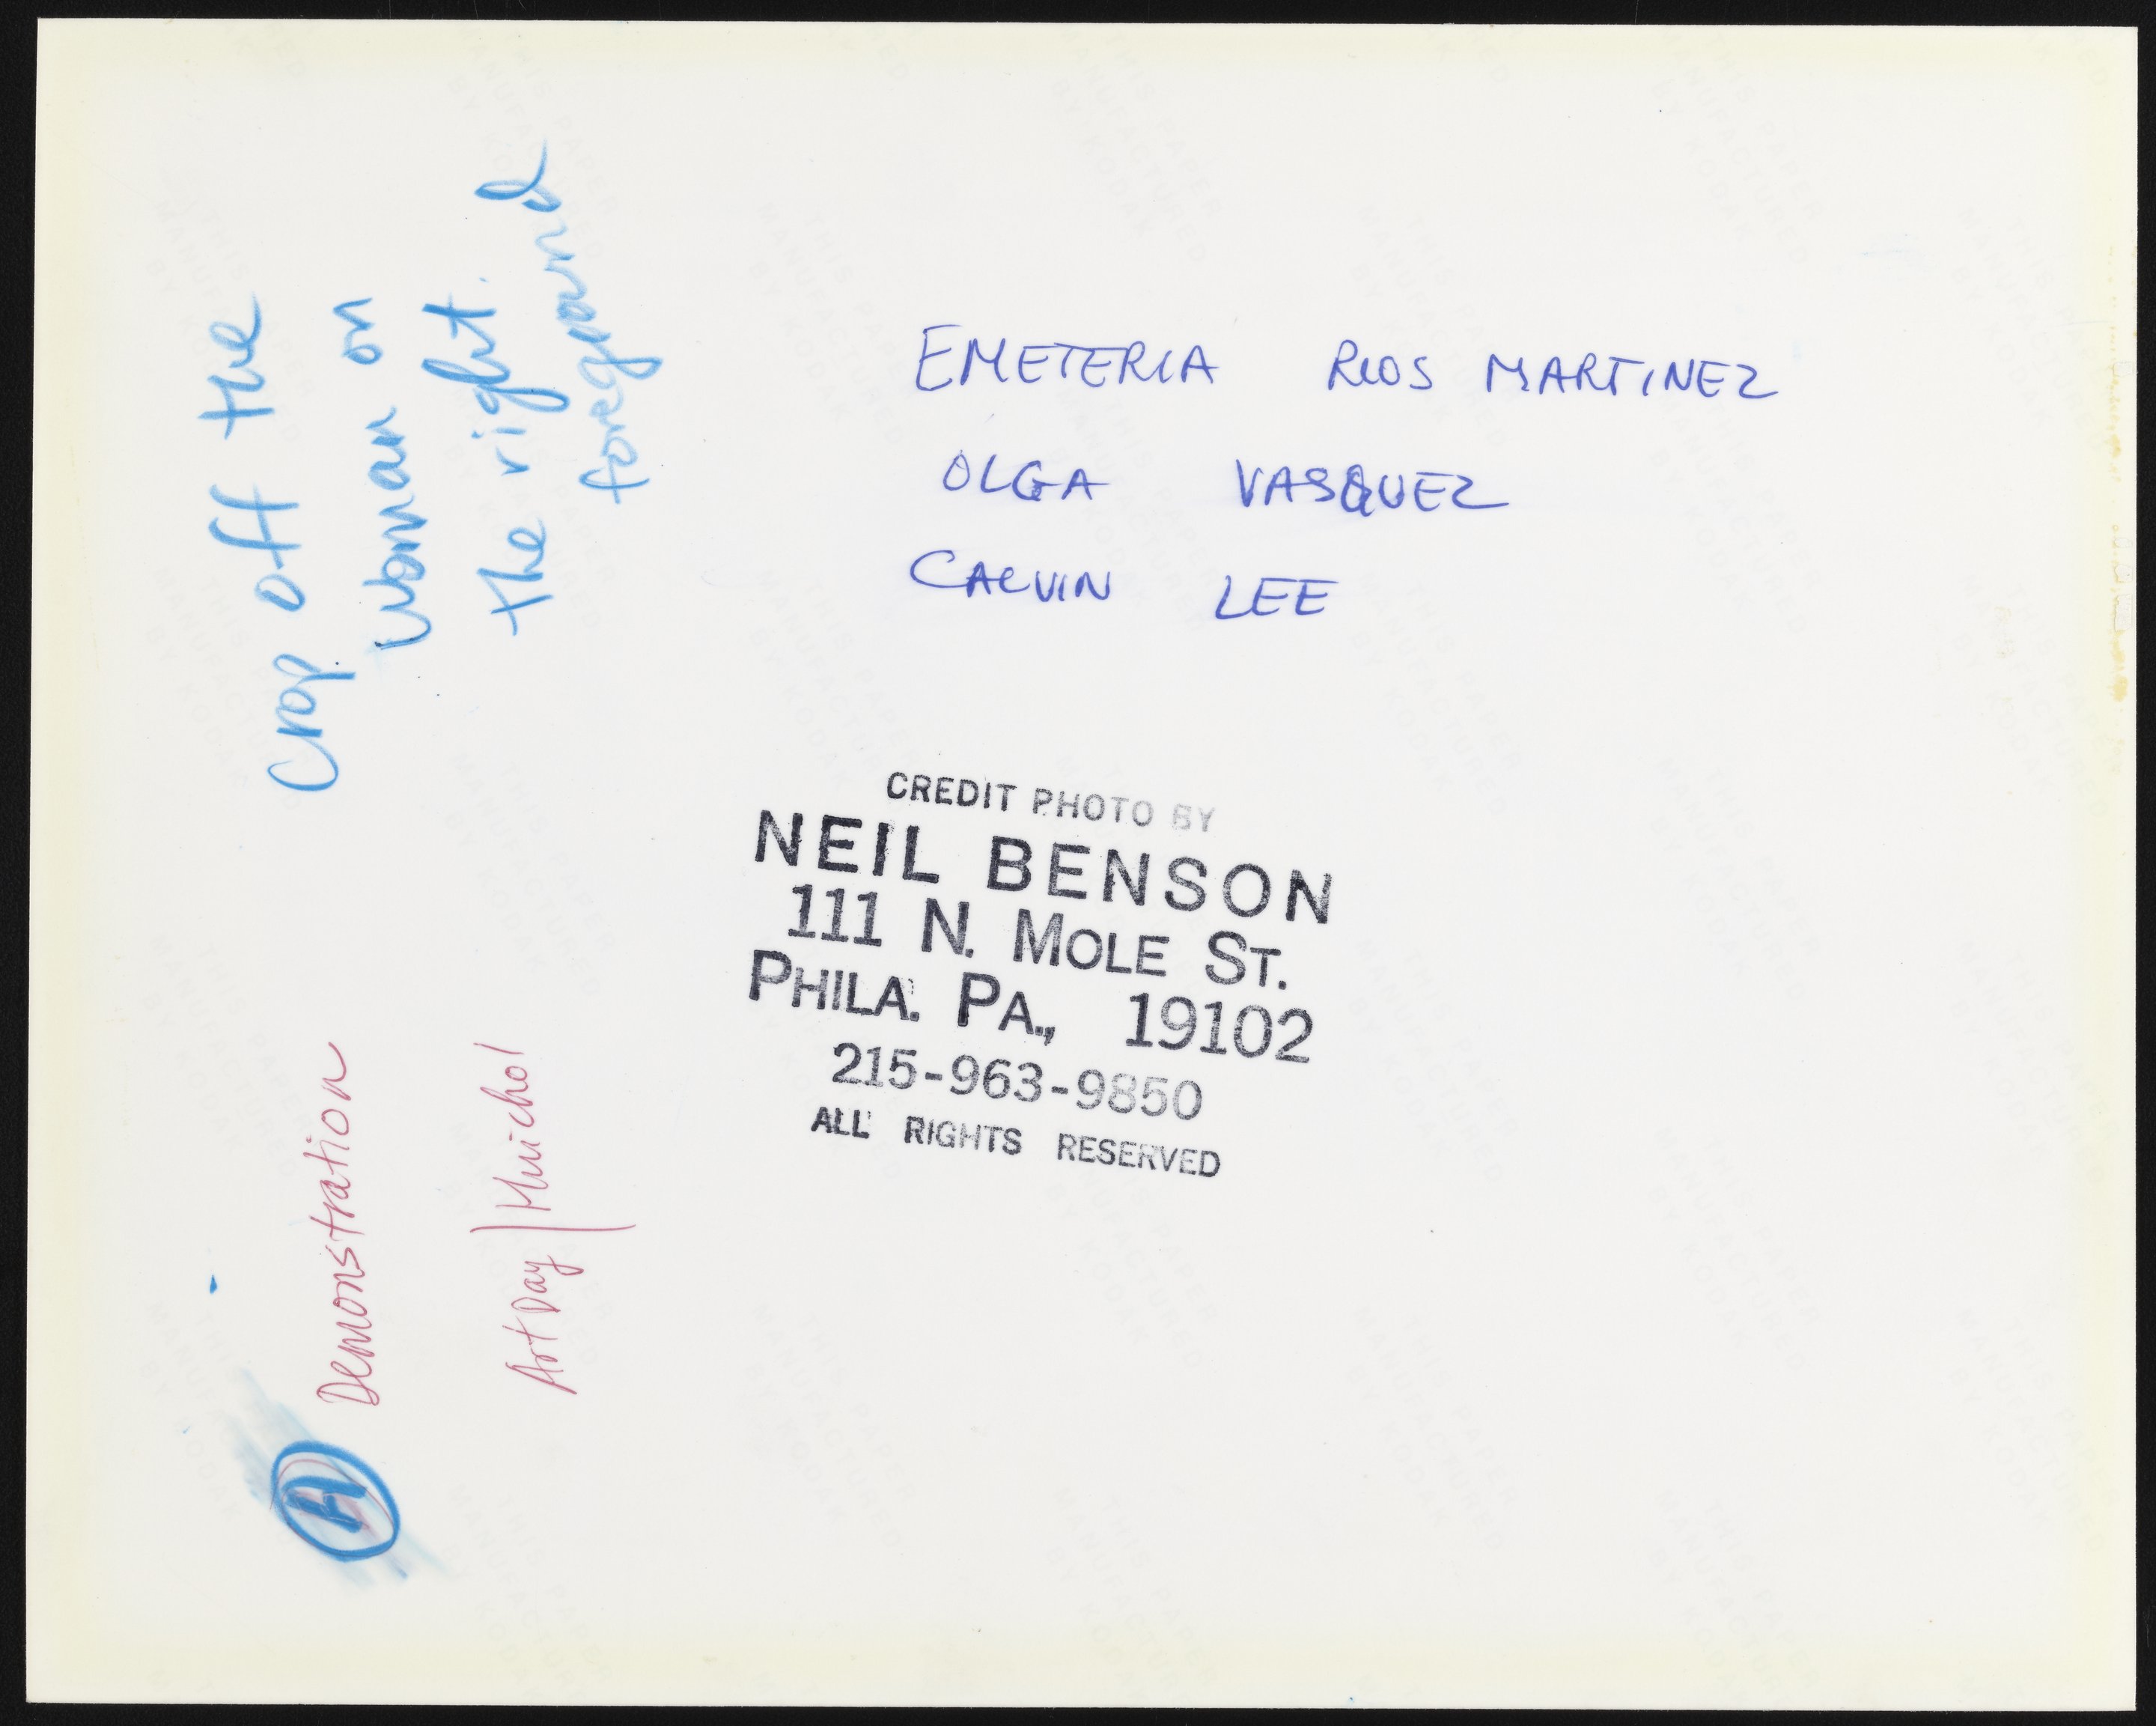 EMETERIA RIOS MARTINEZ
OLGA VASQUEZ
CALVIN LEE
CREDIT PHOTO BY
NEIL BENSON
111 N. MOLE ST.
PHILA. PA., 19102
215-963-9850
ALL RIGHTS RESERVED
Crop off the
woman on
the right.
foreground
A
Demonstration
Art Day | Huichol
THIS PAPER
MANUFACTURED
BY KODAK